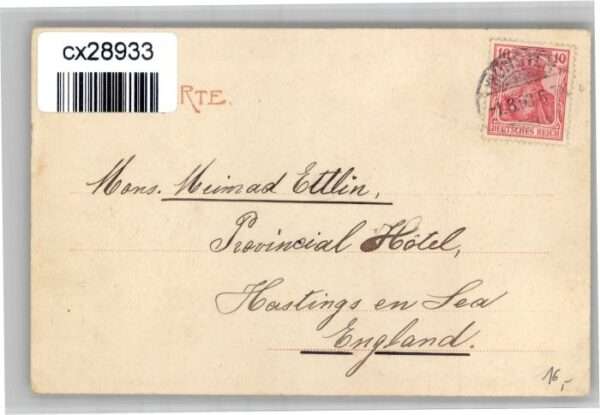 cx28933
RTE.
10 10
DEUTSCHES REICH
Mons. Meinrad Ettlin,
Provincial Hôtel,
Hastings en Sea
England.
16,-